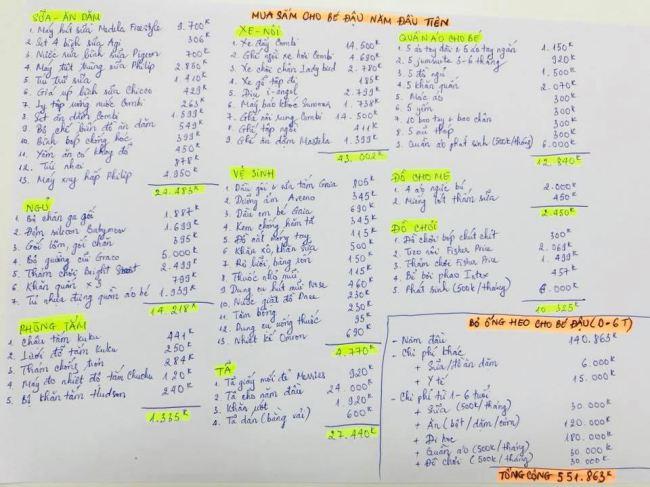 MUA SẮM CHO BÉ ĐẬU NĂM ĐẦU TIÊN
SỮA - ĂN DẶM
1. Máy hút sữa Medela Freestyle 9.700K
2. Set 4 bình sữa Agi 306K
3. Nước rửa bình sữa Pigeon 700K
4. Máy tiệt trùng sữa Philip 2.850K
5. Túi trữ sữa 1.410K
6. Giá úp bình sữa Chicco 429K
7. Ly tập uống nước Combi 263K
8. Set ăn dặm Combi 1.599K
9. Bộ chế biến đồ ăn dặm 549K
10. Bình bóp chống hóc 399K
11. Yếm ăn có máng đổ 450K
12. Túi nhai 878K
13. Máy xay hấp Philip 4.950K
24.483K
NGỦ
1. Bộ chăn ga gối 1.887K
2. Đệm silicon Babymoov 1.699K
3. Gối lõm, gối chặn 395K
4. Bộ quây cũi Graco 5.000K
5. Thảm chơi Bright 2.499K
6. Khăn quấn x 3 799K
7. Tủ nhựa đựng quần áo bé 1.939K
14.218K
PHÒNG TẮM
1. Chậu tắm kuku 441K
2. Lưới đỡ tắm kuku 250K
3. Thảm chống trơn 284K
4. Máy đo nhiệt độ tắm Chuchu 120K
5. Bộ khăn tắm Hudson 240K
1.335K
XE - NÔI
1. Xe đẩy Combi 14.500K
2. Ghế ngồi xe hơi Combi 4.690K
3. Xe chòi chân Lady bird 2.780K
4. Xe gỗ tập đi 185K
5. Địu i-angel 2.799K
6. Máy báo khóc Summer 1.738K
7. Ghế ăn rung Combi 14.500K
8. Ghế tập ngồi 411K
9. Ghế ăn dặm Mastela 1.399K
43.002K
VỆ SINH
1. Dầu gội & sữa tắm Gaia 805K
2. Dưỡng ẩm Aveno 345K
3. Dầu em bé Gaia 690K
4. Kem chống hăm tã 345K
5. Đồ cắt móng tay 115K
6. Khăn xô, khăn sữa 500K
7. Rơ lưỡi, bông rơn 150K
8. Thuốc nhỏ mũi 115K
9. Dụng cụ hút mũi Nose 460K
10. Nước giặt đồ Dnee 230K
11. Tăm bông 230K
12. Dụng cụ uống thuốc 95K
13. Nhiệt kế Omron 690K
4.770K
TÃ
1. Tã giấy mới đẻ Merries 920K
2. Tã cho năm đầu 24.000K
3. Khăn ướt 1.920K
4. Tã dán (bằng vải) 600K
27.440K
QUẦN ÁO CHO BÉ
1. 5 áo tay dài & 5 áo tay ngắn 1.150K
2. 5 jumsuite 3-6 tháng 920K
3. 5 đồ ngủ 1.500K
4. 5 khăn quấn 2.070K
5. Móc áo 300K
6. 5 yếm 300K
7. 10 bao tay & bao chân 300K
8. 5 mũ thóp 300K
9. Quần áo phát sinh (500K/tháng) 6.000K
12.840K
ĐỒ CHO MẸ
1. 4 áo ngực bú 2.000K
2. Miếng lót thấm sữa 450K
2.450K
ĐỒ CHƠI
1. Đồ chơi bóp chút chít 300K
2. Treo nôi Fisher Price 2.069K
3. Thảm chơi Fisher Price 1.499K
4. Bể bơi phao Intex 457K
5. Phát sinh (500K/tháng) 6.000K
10.325K
BỎ ỐNG HEO CHO BÉ ĐẬU (0-6T)
- Năm đầu 140.863K
- Chi phí khác
+ Sữa/thì ăn dặm 6.000K
+ Y tế 15.000K
- Chi phí từ 1-6 tuổi
+ Sữa (500K/tháng) 30.000K
+ Ăn (bột/dặm/cơm) 120.000K
+ Đi học 180.000K
+ Quần áo (500K/tháng) 30.000K
+ Đồ chơi (500K/tháng) 30.000K
TỔNG CỘNG 551.863K